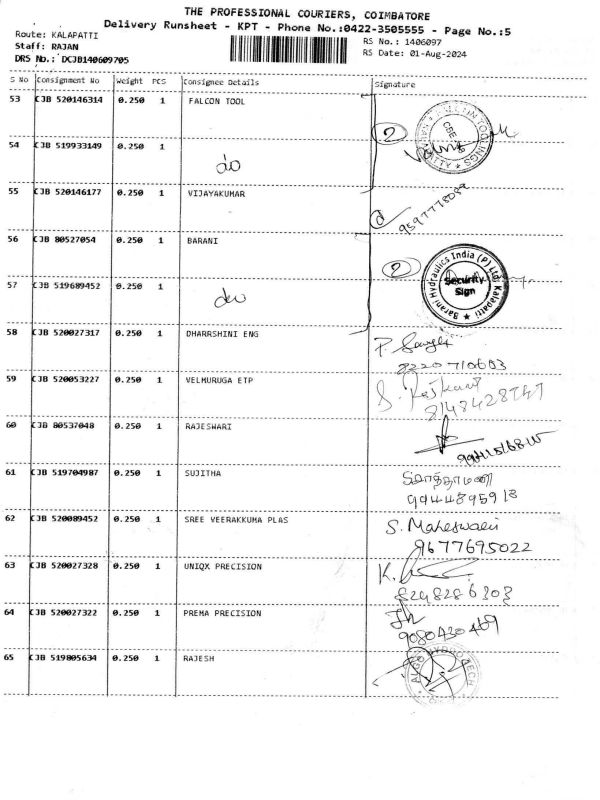 THE PROFESSIONAL COURIERS, COIMBATORE
Delivery Runsheet - KPT - Phone No.:0422-3505555 - Page No.:5
Route: KALAPATTI
RS No.: 1406097
Staff: RAJAN
RS Date: 01-Aug-2024
DRS No.: DCJB140609705
S No Consignment No Weight PCS Consignee Details Signature
53 CJB 520146314 0.250 1 FALCON TOOL
2
54 CJB 519933149 0.250 1
do
55 CJB 520146177 0.250 1 VIJAYAKUMAR
9597778089
56 CJB 80527054 0.250 1 BARANI
2 Barani Hydraulics India (P) Ltd. Kalapatti
Security
Sign
57 CJB 519689452 0.250 1
do
58 CJB 520027317 0.250 1 DHARRSHINI ENG
59 CJB 520053227 0.250 1 VELMURUGA ETP
60 CJB 80537048 0.250 1 RAJESWARI
61 CJB 519704987 0.250 1 SUJITHA
9944895913
62 CJB 520089452 0.250 1 SREE VEERAKKUMA PLAS
S. Maheswari
9677695022
63 CJB 520027328 0.250 1 UNIQX PRECISION
64 CJB 520027322 0.250 1 PREMA PRECISION
9080430469
65 CJB 519805634 0.250 1 RAJESH